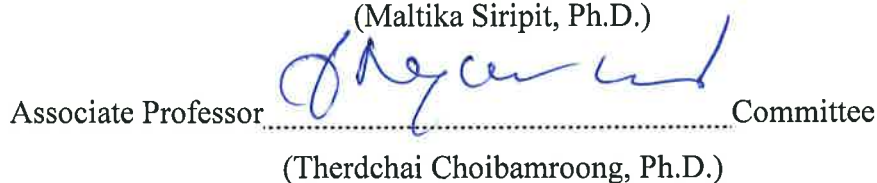 (Maltika Siripit, Ph.D.)
Associate Professor........................................................Committee
(Therdchai Choibamroong, Ph.D.)